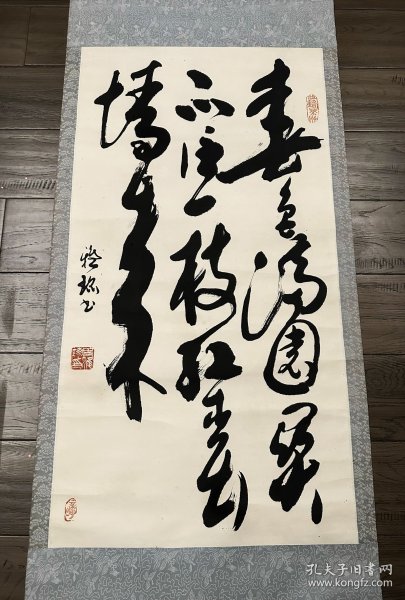 春色满園関
不住一枝红杏出
墙来
书
孔夫子旧书网
www.kongfz.com